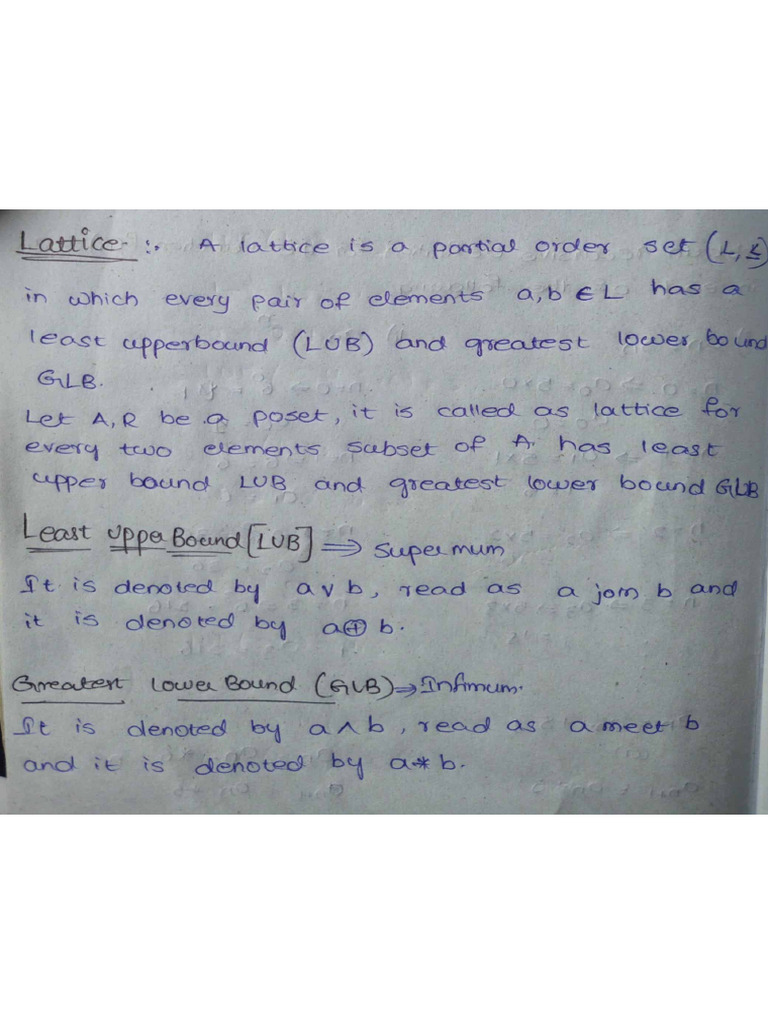 Lattice :. A lattice is a partial order set (L, ≤)
in which every pair of elements a,b ∈ L has a
least upperbound (LUB) and greatest lower bound
GLB.
Let A,R be a poset, it is called as lattice for
every two elements subset of A has least
upper bound LUB and greatest lower bound GLB
Least Upper Bound [LUB] ⇒ Supermum
It is denoted by a v b, read as a join b and
it is denoted by a ⊕ b.
Greatest Lower Bound (GLB) ⇒ Infimum.
It is denoted by a ∧ b, read as a meet b
and it is denoted by a * b.